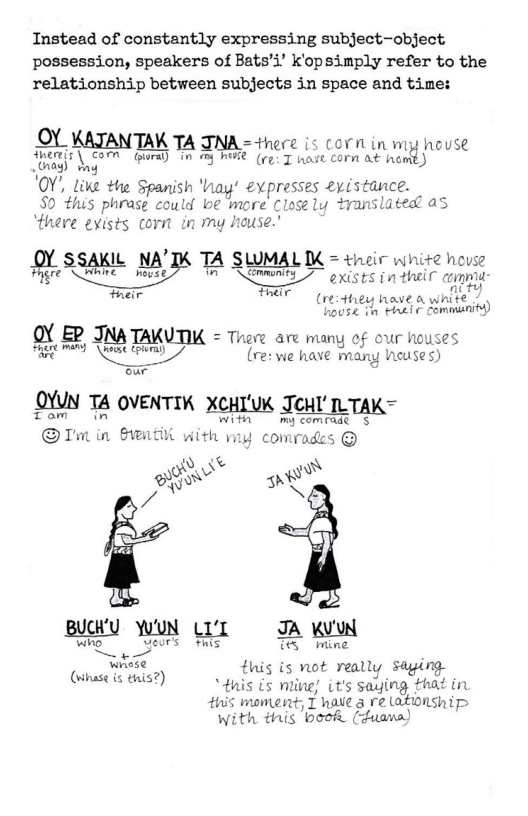 Instead of constantly expressing subject-object
possession, speakers of Bats'i' k'op simply refer to the
relationship between subjects in space and time:
OY KAJANTAK TA JNA = there is corn in my house
there is corn (plural) in my house (re: I have corn at home)
(hay) my
'OY', like the Spanish 'hay' expresses existance.
So this phrase could be more closely translated as
'there exists corn in my house.'
OY SSAKIL NA'IK TA SLUMALIK = their white house
there is white house in community exists in their commu-
nity
their their (re: they have a white
house in their community)
OY EP JNATAKUTIK = There are many of our houses
there are many house (plural) (re: we have many houses)
our
OYUN TA OVENTIK XCHI'UK JCHI'ILTAK =
I am in with my comrade s
☺ I'm in Oventik with my comrades ☺
BUCH'U
YU'UN LI'E
JA KU'UN
BUCH'U YU'UN LI'I JA KU'UN
who your's this it's mine
+
whose
(whose is this?)
this is not really saying
'this is mine,' it's saying that in
this moment, I have a relationship
with this book (Juana)